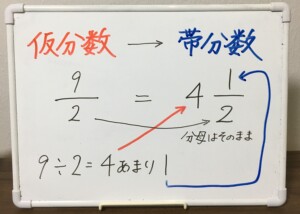 仮分数 → 帯分数
9/2 = 4 1/2
分母はそのまま
9÷2=4あまり1